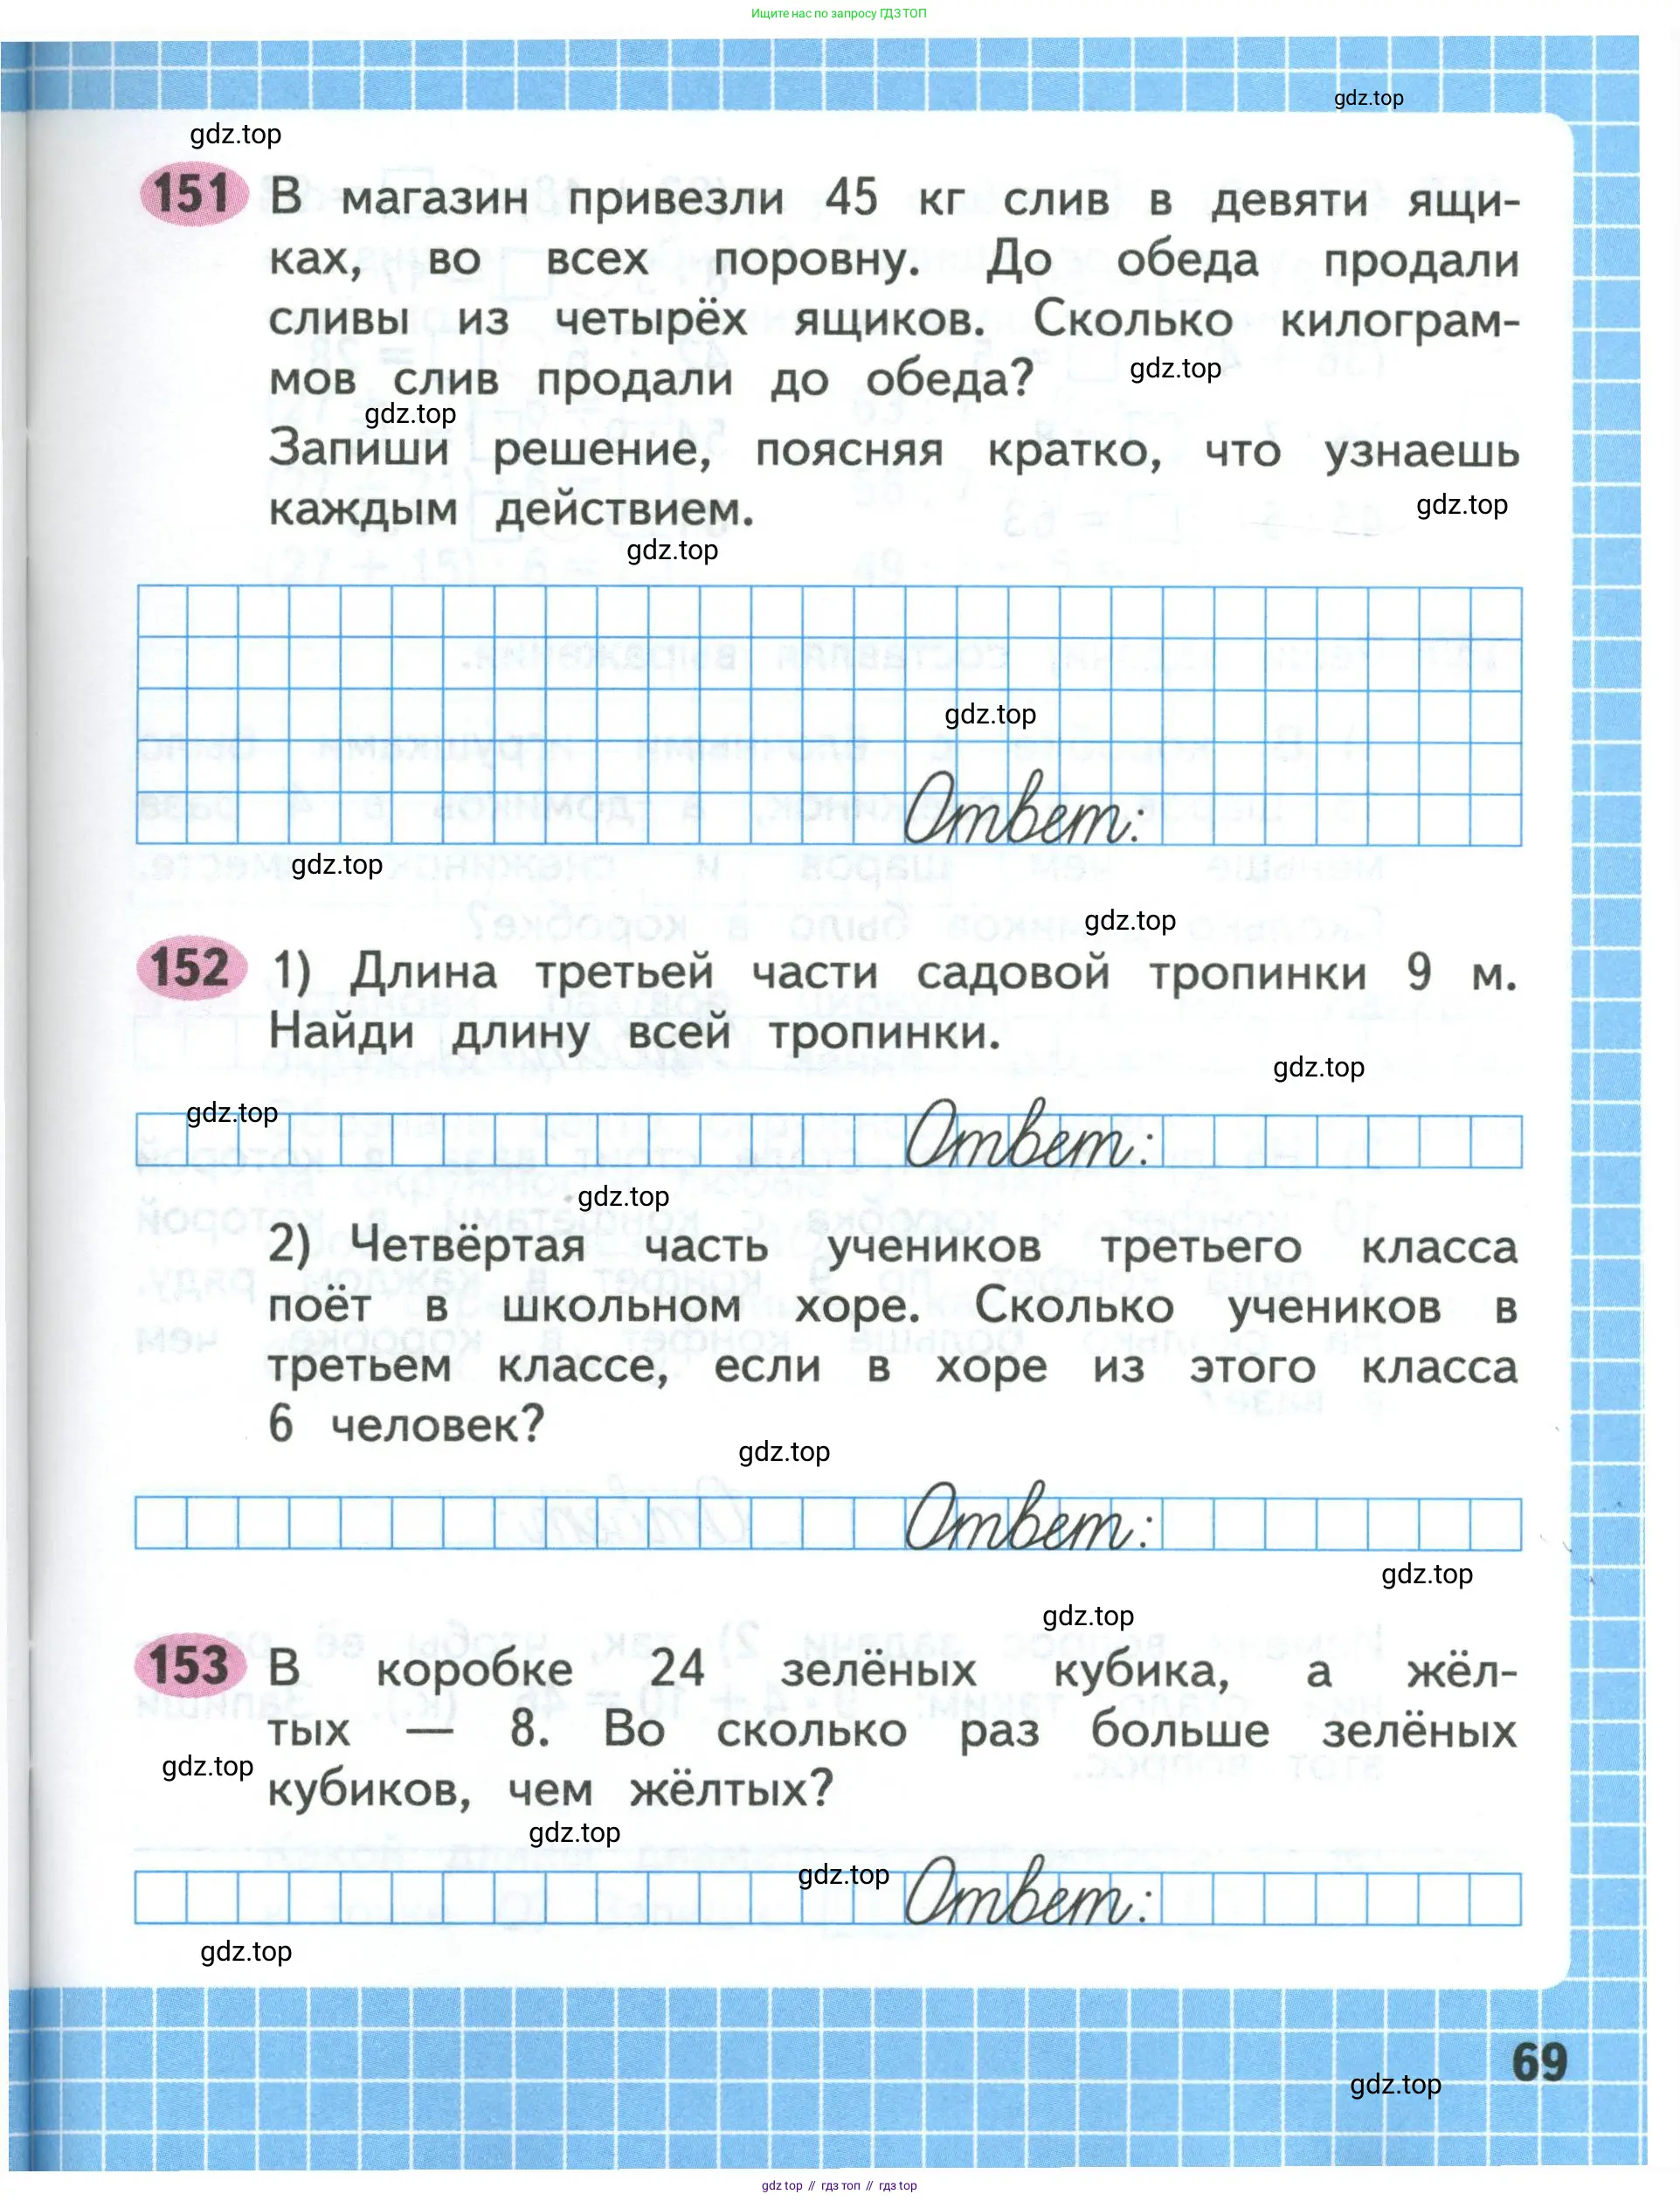 Ищите нас по запросу ГДЗ ТОП
gdz.top
gdz.top
151 В магазин привезли 45 кг слив в девяти ящи-
ках, во всех поровну. До обеда продали
сливы из четырёх ящиков. Сколько килограм-
мов слив продали до обеда?
gdz.top
gdz.top
Запиши решение, поясняя кратко, что узнаешь
каждым действием.
gdz.top
gdz.top
gdz.top
Ответ:
gdz.top
gdz.top
152 1) Длина третьей части садовой тропинки 9 м.
Найди длину всей тропинки.
gdz.top
gdz.top
Ответ:
gdz.top
2) Четвёртая часть учеников третьего класса
поёт в школьном хоре. Сколько учеников в
третьем классе, если в хоре из этого класса
6 человек?
gdz.top
Ответ:
gdz.top
gdz.top
153 В коробке 24 зелёных кубика, а жёл-
тых — 8. Во сколько раз больше зелёных
gdz.top
кубиков, чем жёлтых?
gdz.top
gdz.top
Ответ:
gdz.top
69
gdz.top
gdz top // гдз топ // гдз top